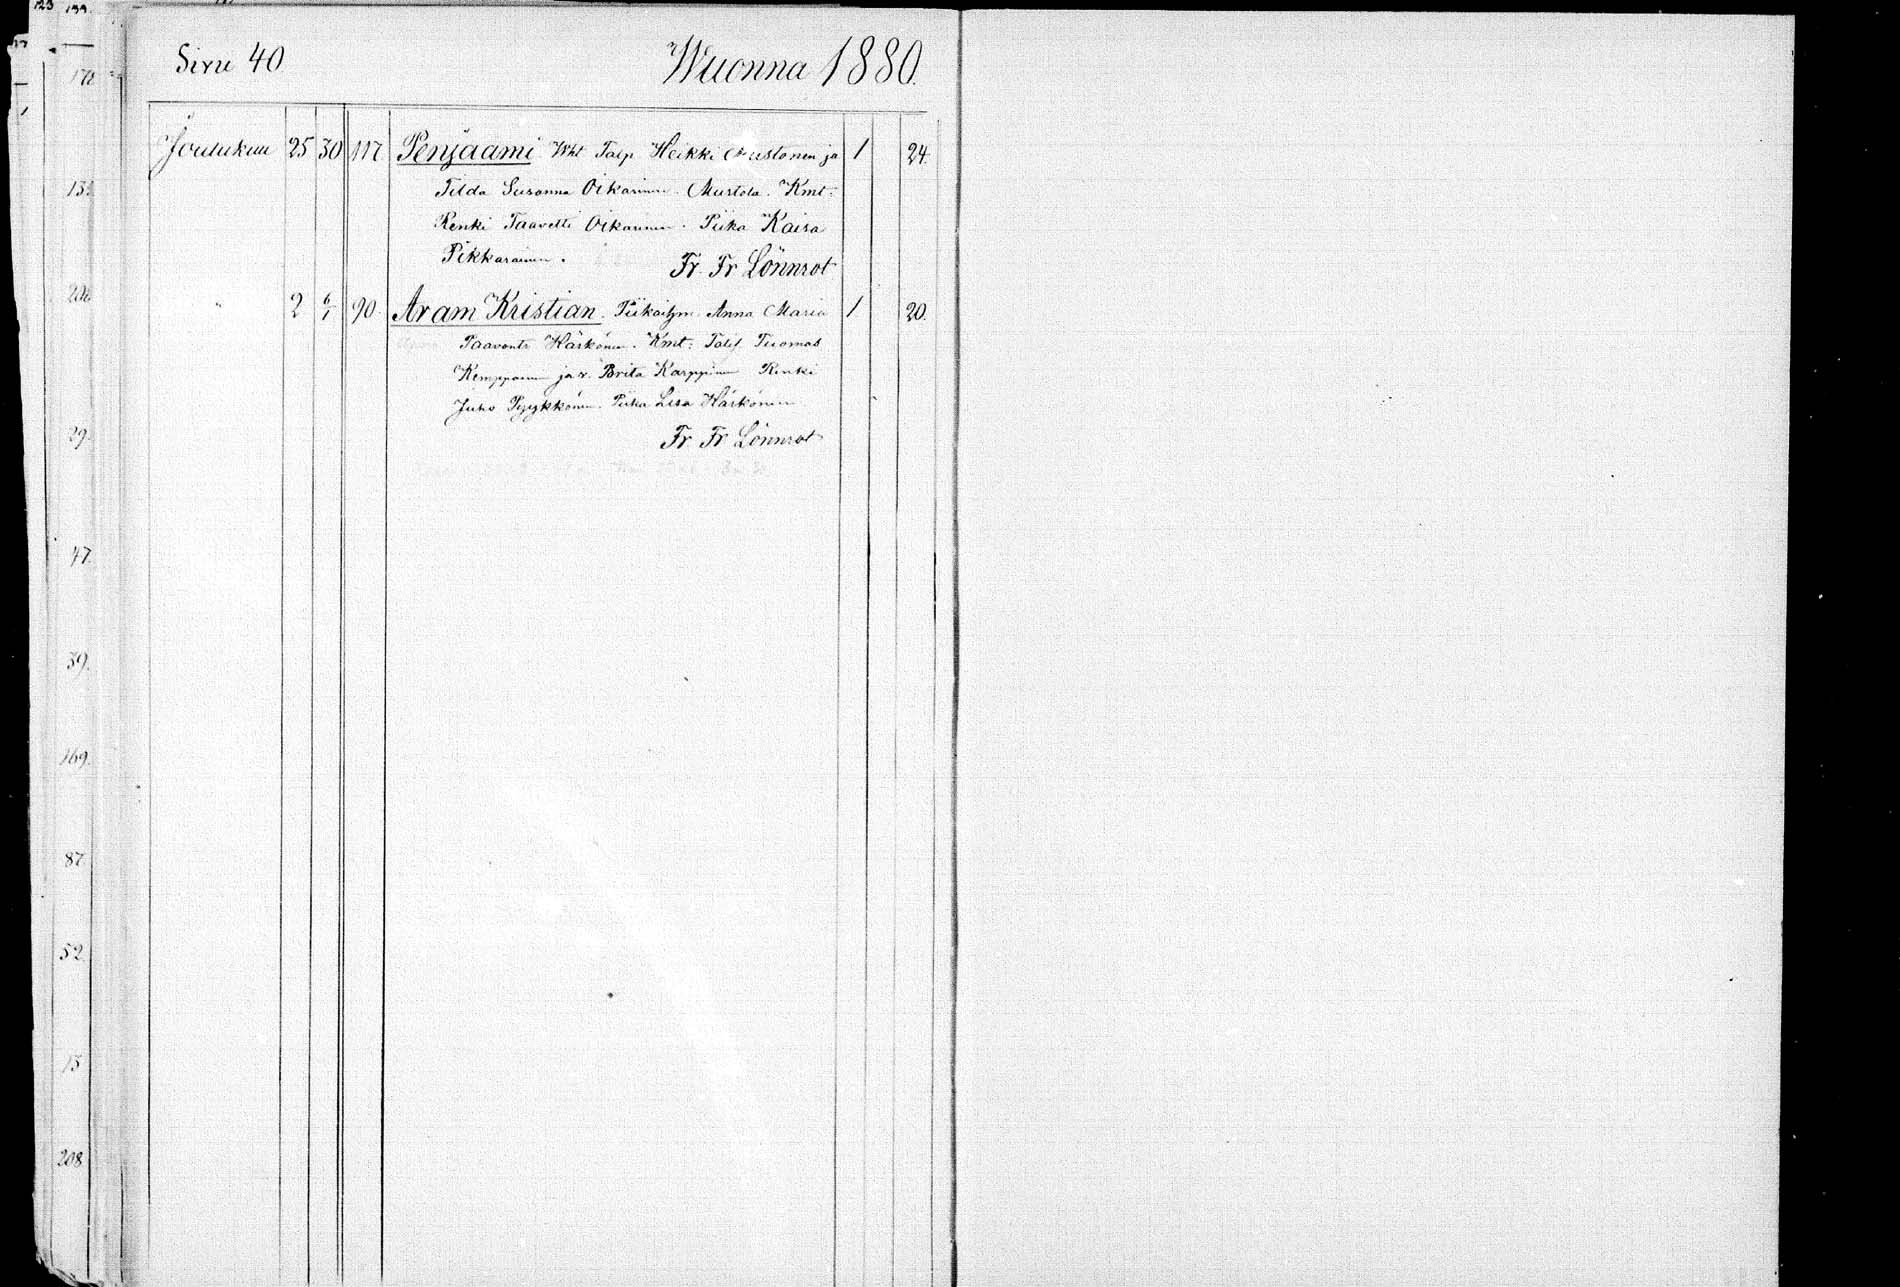 Sivu 40. Wuonna 1880.
Joulukuu 25 30 117 Penjaami Wht Talp Heikki Mustonen ja 1 24.
Tilda Susanna Oikarinen. Mustola. Kmt:
Renki Taavetti Oikarinen. Piika Kaisa
Pikkarainen.
Fr. Fr Lönnrot
" 2 6/1 90. Aram Kristian. Piikaitgm Anna Maria 1 20.
Paavontr Härkönen. Kmt: Talll Tuomas
Kemppainen ja v. Brita Karppinen Renki
Juho Pyykkönen. Piika Lisa Härkönen
Fr. Fr Lönnrot
123 199.
172
206
29.
47.
39.
169.
87
52
13
208